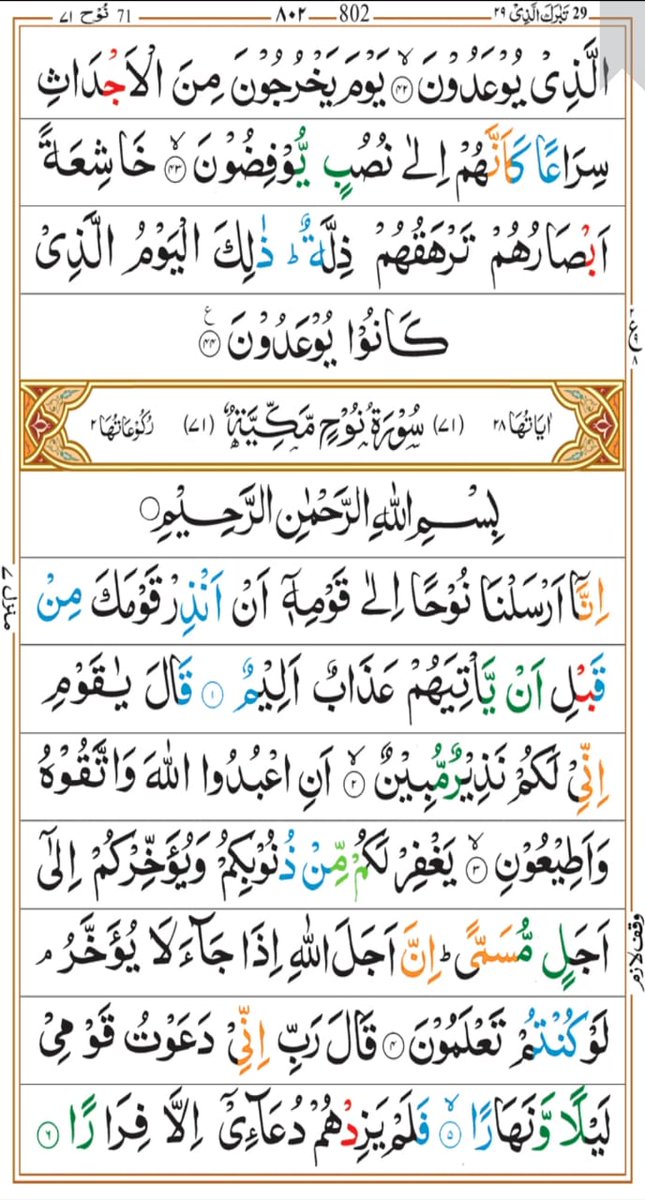 29 تَبٰرَكَ الَّذِیْ ۲۹ ۸۰۲ 802 71 نُوْح ۷۱
الَّذِیْ یُوْعَدُوْنَ ۙ﴿۴۲﴾ یَوْمَ یَخْرُجُوْنَ مِنَ الْاَجْدَاثِ
سِرَاعًا كَاَنَّهُمْ اِلٰی نُصُبٍ یُّوْفِضُوْنَ ۙ﴿۴۳﴾ خَاشِعَةً
اَبْصَارُهُمْ تَرْهَقُهُمْ ذِلَّةٌ ؕ ذٰلِكَ الْیَوْمُ الَّذِیْ
كَانُوْا یُوْعَدُوْنَ ﴿۴۴﴾ ع
اٰیَاتُهَا ۲۸ (۷۱) سُوْرَةُ نُوْحٍ مَّكِّیَّةٌ (۷۱) رُكُوْعَاتُهَا ۲
بِسْمِ اللّٰهِ الرَّحْمٰنِ الرَّحِیْمِ
اِنَّاۤ اَرْسَلْنَا نُوْحًا اِلٰی قَوْمِهٖۤ اَنْ اَنْذِرْ قَوْمَكَ مِنْ
منزل ۷
قَبْلِ اَنْ یَّاْتِیَهُمْ عَذَابٌ اَلِیْمٌ ﴿۱﴾ قَالَ یٰقَوْمِ
اِنِّیْ لَكُمْ نَذِیْرٌ مُّبِیْنٌ ۙ﴿۲﴾ اَنِ اعْبُدُوا اللّٰهَ وَاتَّقُوْهُ
وَاَطِیْعُوْنِ ۙ﴿۳﴾ یَغْفِرْ لَكُمْ مِّنْ ذُنُوْبِكُمْ وَیُؤَخِّرْكُمْ اِلٰۤی
اَجَلٍ مُّسَمًّی ؕ اِنَّ اَجَلَ اللّٰهِ اِذَا جَآءَ لَا یُؤَخَّرُ ۘ
وقف لازم
لَوْ كُنْتُمْ تَعْلَمُوْنَ ﴿۴﴾ قَالَ رَبِّ اِنِّیْ دَعَوْتُ قَوْمِیْ
لَیْلًا وَّنَهَارًا ۙ﴿۵﴾ فَلَمْ یَزِدْهُمْ دُعَآءِیْۤ اِلَّا فِرَارًا ﴿۶﴾